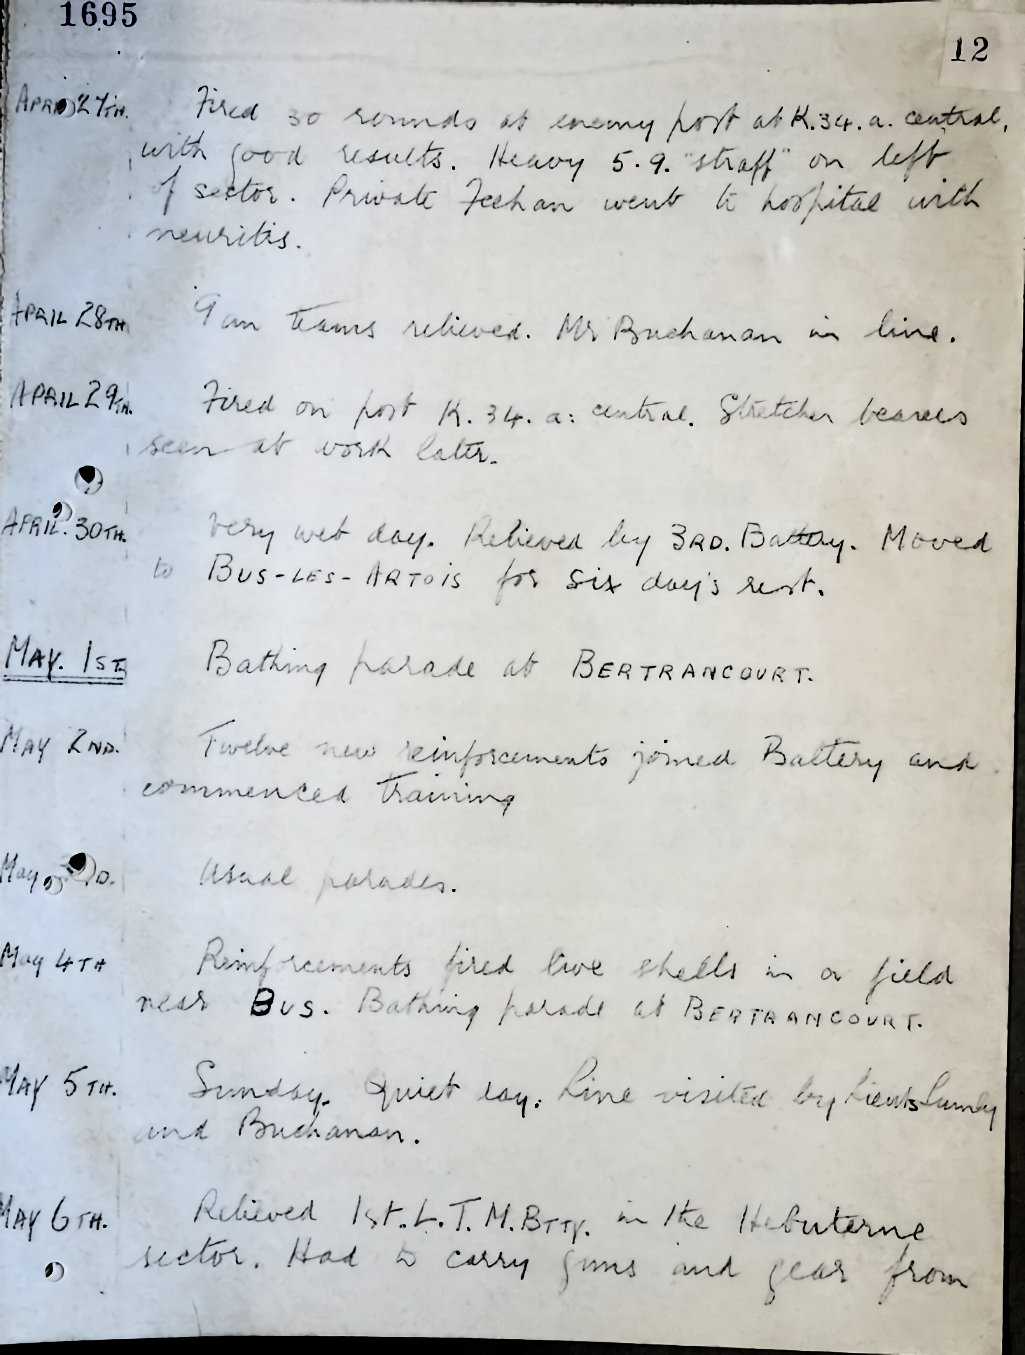 1695
12
APRIL 27TH. Fired 30 rounds at enemy post at K.34.a. central,
with good results. Heavy 5.9. "straff" on left
of sector. Private Feehan went to hospital with
neuritis.
APRIL 28TH. Gun teams relieved. Mr Buchanan in line.
APRIL 29TH. Fired on post K.34.a: central. Stretcher bearers
seen at work later.
APRIL. 30TH. Very wet day. Relieved by 3RD. Battery. Moved
to BUS-LES-ARTOIS for six day's rest.
MAY. 1ST. Bathing parade at BERTRANCOURT.
MAY 2ND. Twelve new reinforcements joined Battery and
commenced training
May Usual parades.
May 4TH Reinforcements fired live shells in a field
near BUS. Bathing parade at BERTRANCOURT.
MAY 5TH. Sunday. Quiet day. Line visited by Lieuts Lumley
and Buchanan.
MAY 6TH. Relieved 1st. L.T.M.BTTY. in the Hebuterne
sector. Had to carry guns and gear from